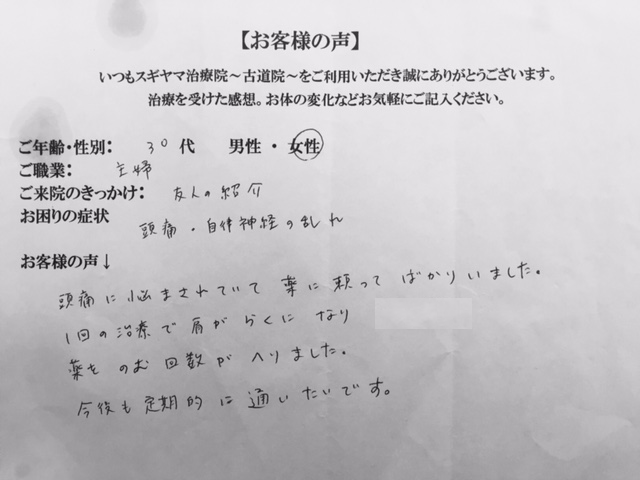 【お客様の声】
いつもスギヤマ治療院～古道院～をご利用いただき誠にありがとうございます。
治療を受けた感想。お体の変化などお気軽にご記入ください。
ご年齢・性別： 30代 男性・女性
ご職業： 主婦
ご来院のきっかけ： 友人の紹介
お困りの症状
頭痛・自律神経の乱れ
お客様の声↓
頭痛に悩まされていて薬に頼ってばかりいました。
1回の治療で肩がらくになり
薬をのむ回数がへりました。
今後も定期的に通いたいです。